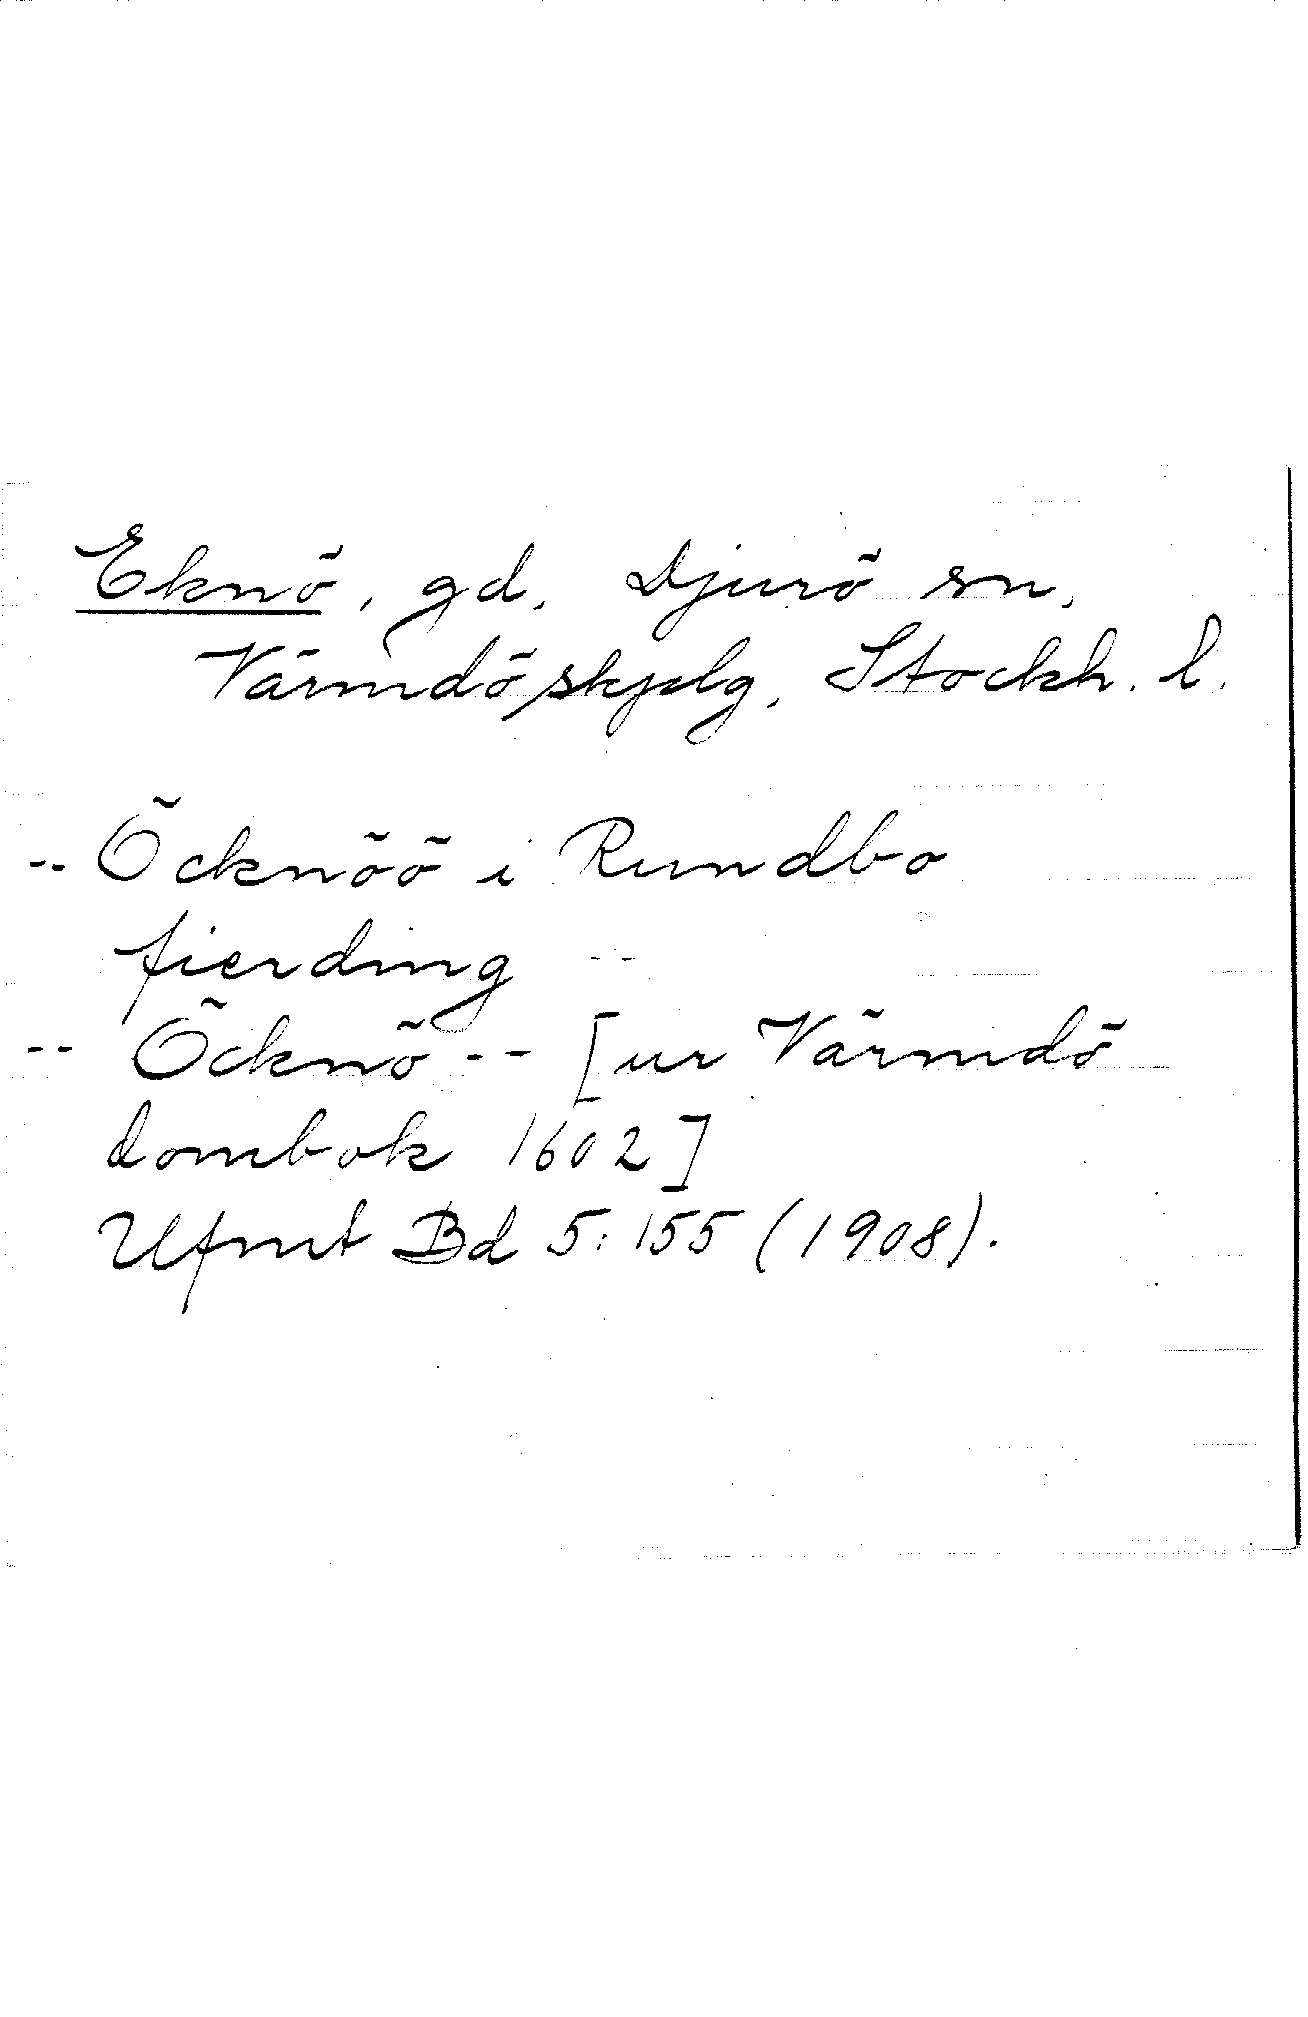 Eknö, gd, Djurö sn,
Värmdö skjslg, Stockh. l.
-- Öcknöö i Rundbo
fierding --
-- Öcknö -- [ur Värmdö
dombok 1602]
Ufmt Bd 5:155 (1908).